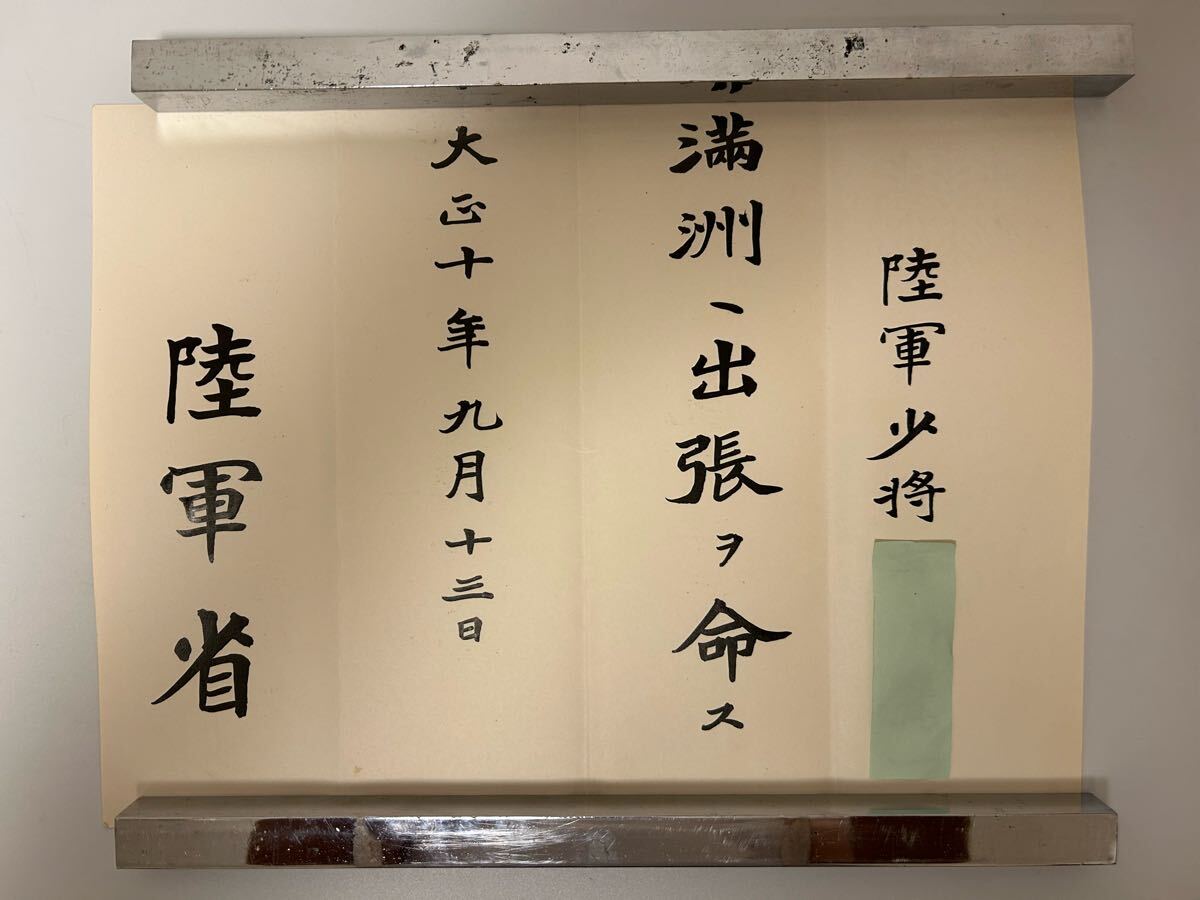 陸軍少將
滿洲ヘ出張ヲ命ス
大正十年九月十三日
陸軍省